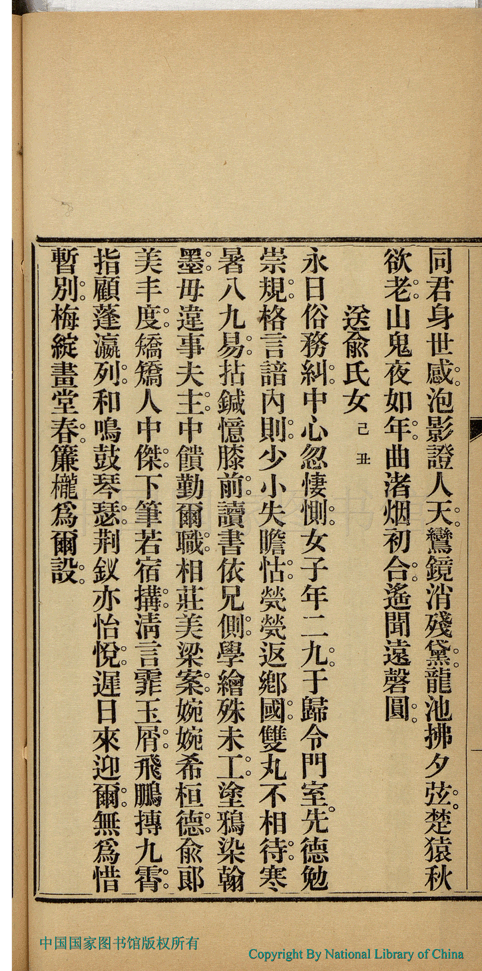 同君身世感泡影證人天鸞鏡消殘黛龍池拂夕弦楚猿秋
欲老山鬼夜如年曲渚烟初合遙聞遠磬圓
送兪氏女己丑
永日俗務糾中心忽悽惻女子年二九于歸令門室先德勉
崇規格言諳內則少小失瞻怙煢煢返鄕國雙丸不相待寒
暑八九易拈鍼憶膝前讀書依兄側學繪殊未工塗鴉染翰
墨毋違事夫主中饋勤爾職相莊美梁案婉婉希桓德兪郞
美丰度矯矯人中傑下筆若宿搆淸言霏玉屑飛鵬摶九霄
指顧蓬瀛列和鳴鼓琴瑟荆釵亦怡悅遲日來迎爾無爲惜
暫別梅綻畫堂春簾櫳爲爾設
中国国家图书馆版权所有
Copyright By National Library of China